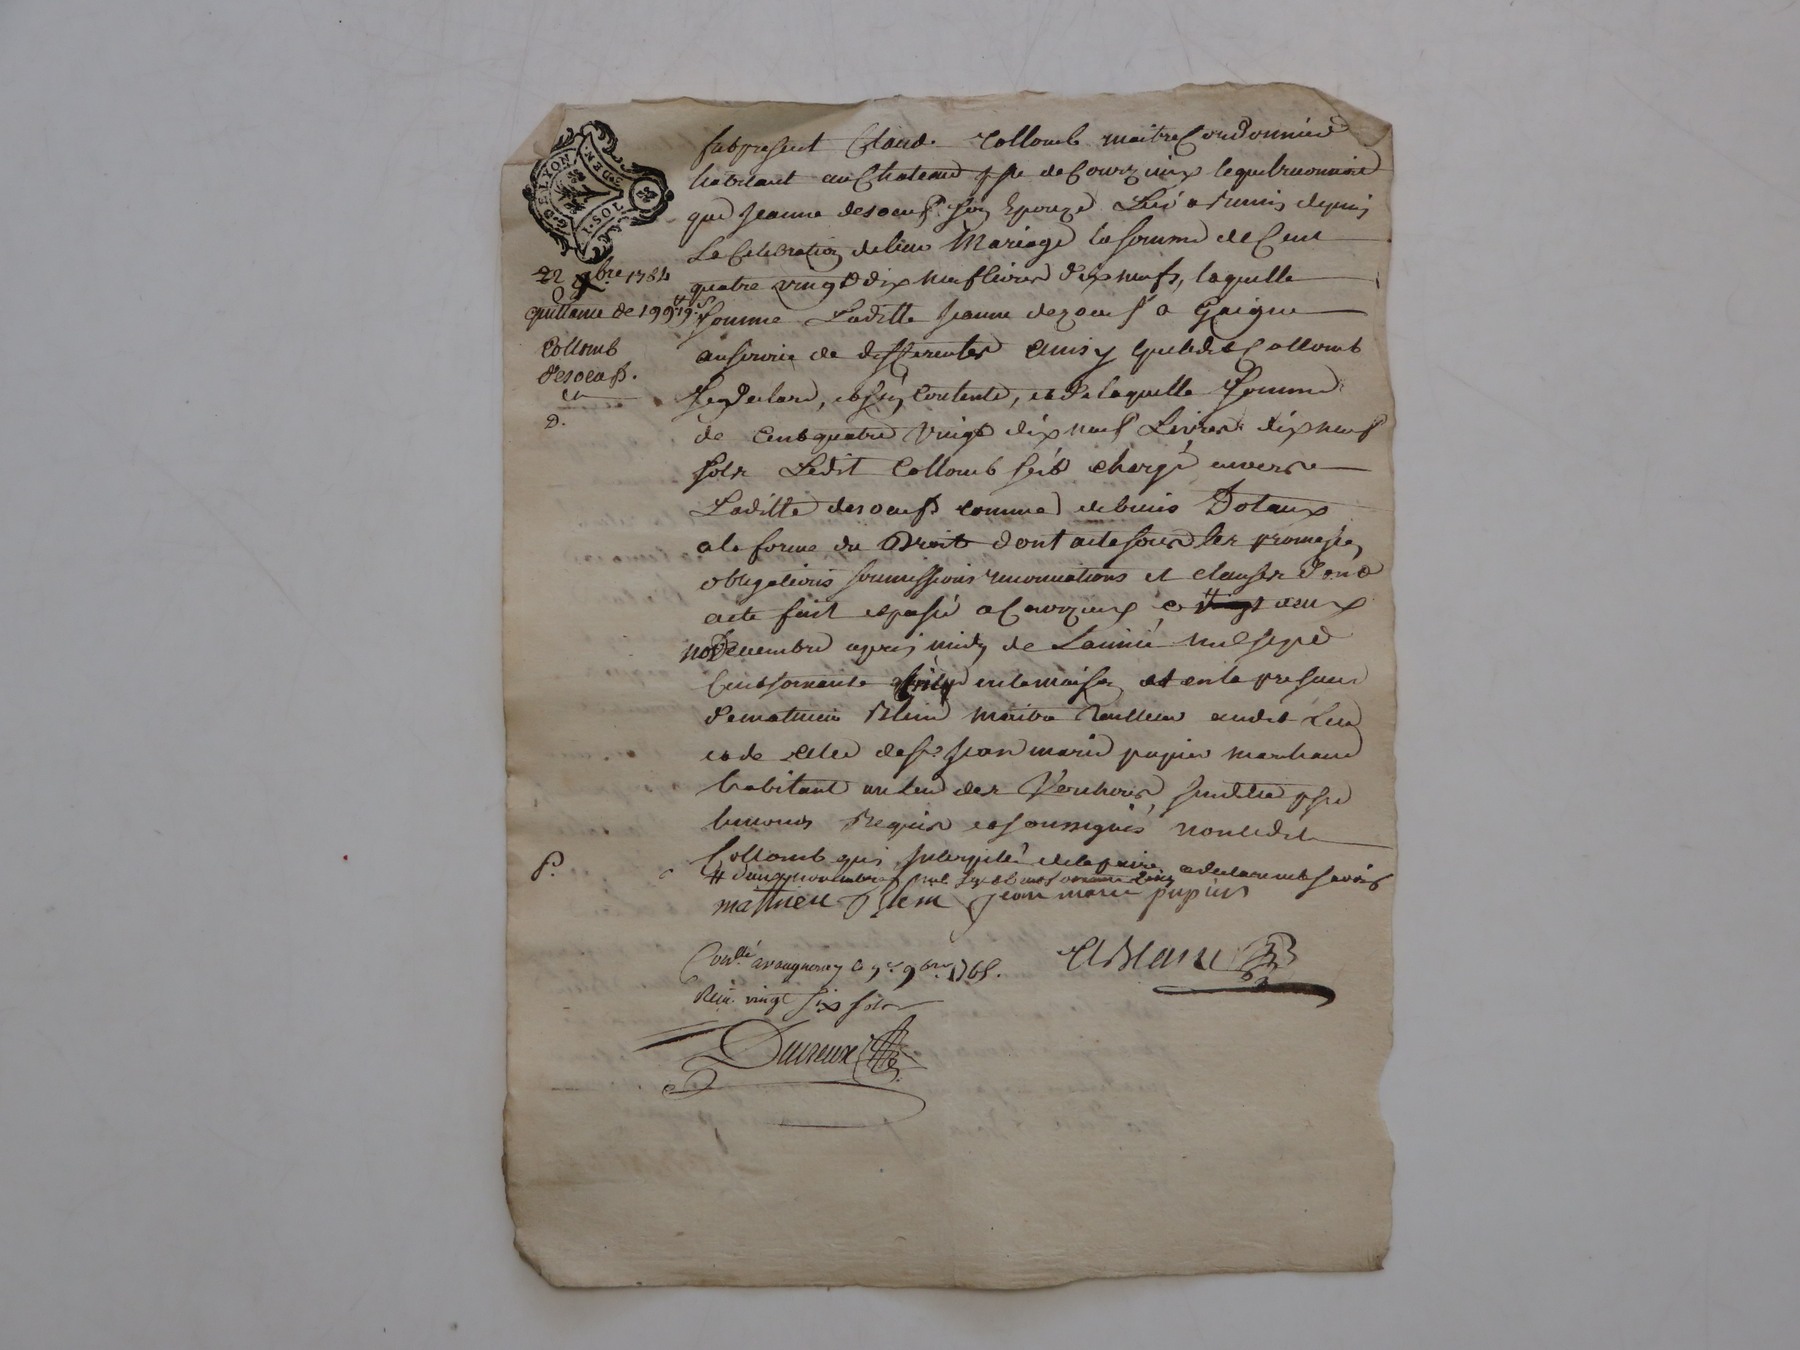 G. DE LYON
I. SOL
DEN.
22 9bre 1784
quittance de 199# 19s
Collomb
desoeuf.
D.
fut present Claude Collomb maitre Cordonnier
habitant au Chateau psse de Courzieux lequel
que Jeanne desoeuf son Epouze Luy a remis depuis
La Celebration de leur Mariage la somme de Cent
quatre vingt dix neuf livres dix neufs, laquelle
somme Laditte Jeanne desoeuf a Gaigne
au service de differentes ainsy que ledit Collomb
le declare, Contente, et de laquelle Somme
de Cent quatre Vingt dix neuf Livres dix neuf
sols Ledit Collomb s'est chargé envers
Laditte desoeuf comme de biens Dotaux
a la forme du Droit dont acte sous les promesses,
obligations soumissions renonciations et clauses Donc
acte fait et passé a Courzieux deux
novembre apres midy de Lannée mil sept
Cent soixante en la maison et en la presence
de mathieu Blein maitre Tailleur audit Lieu
et de celle de sr Jean marie pupier marchand
habitant au lieu des susditte psse
temoins Requis et soussignés non ledit
Collomb qui Interpellé de le faire, a declaré ne savoir
# deux novembre mil sept cent
mathieu Blein jean marie pupier
Conllé a vaugneray le 9bre 1765.
Reçu vingt six sols